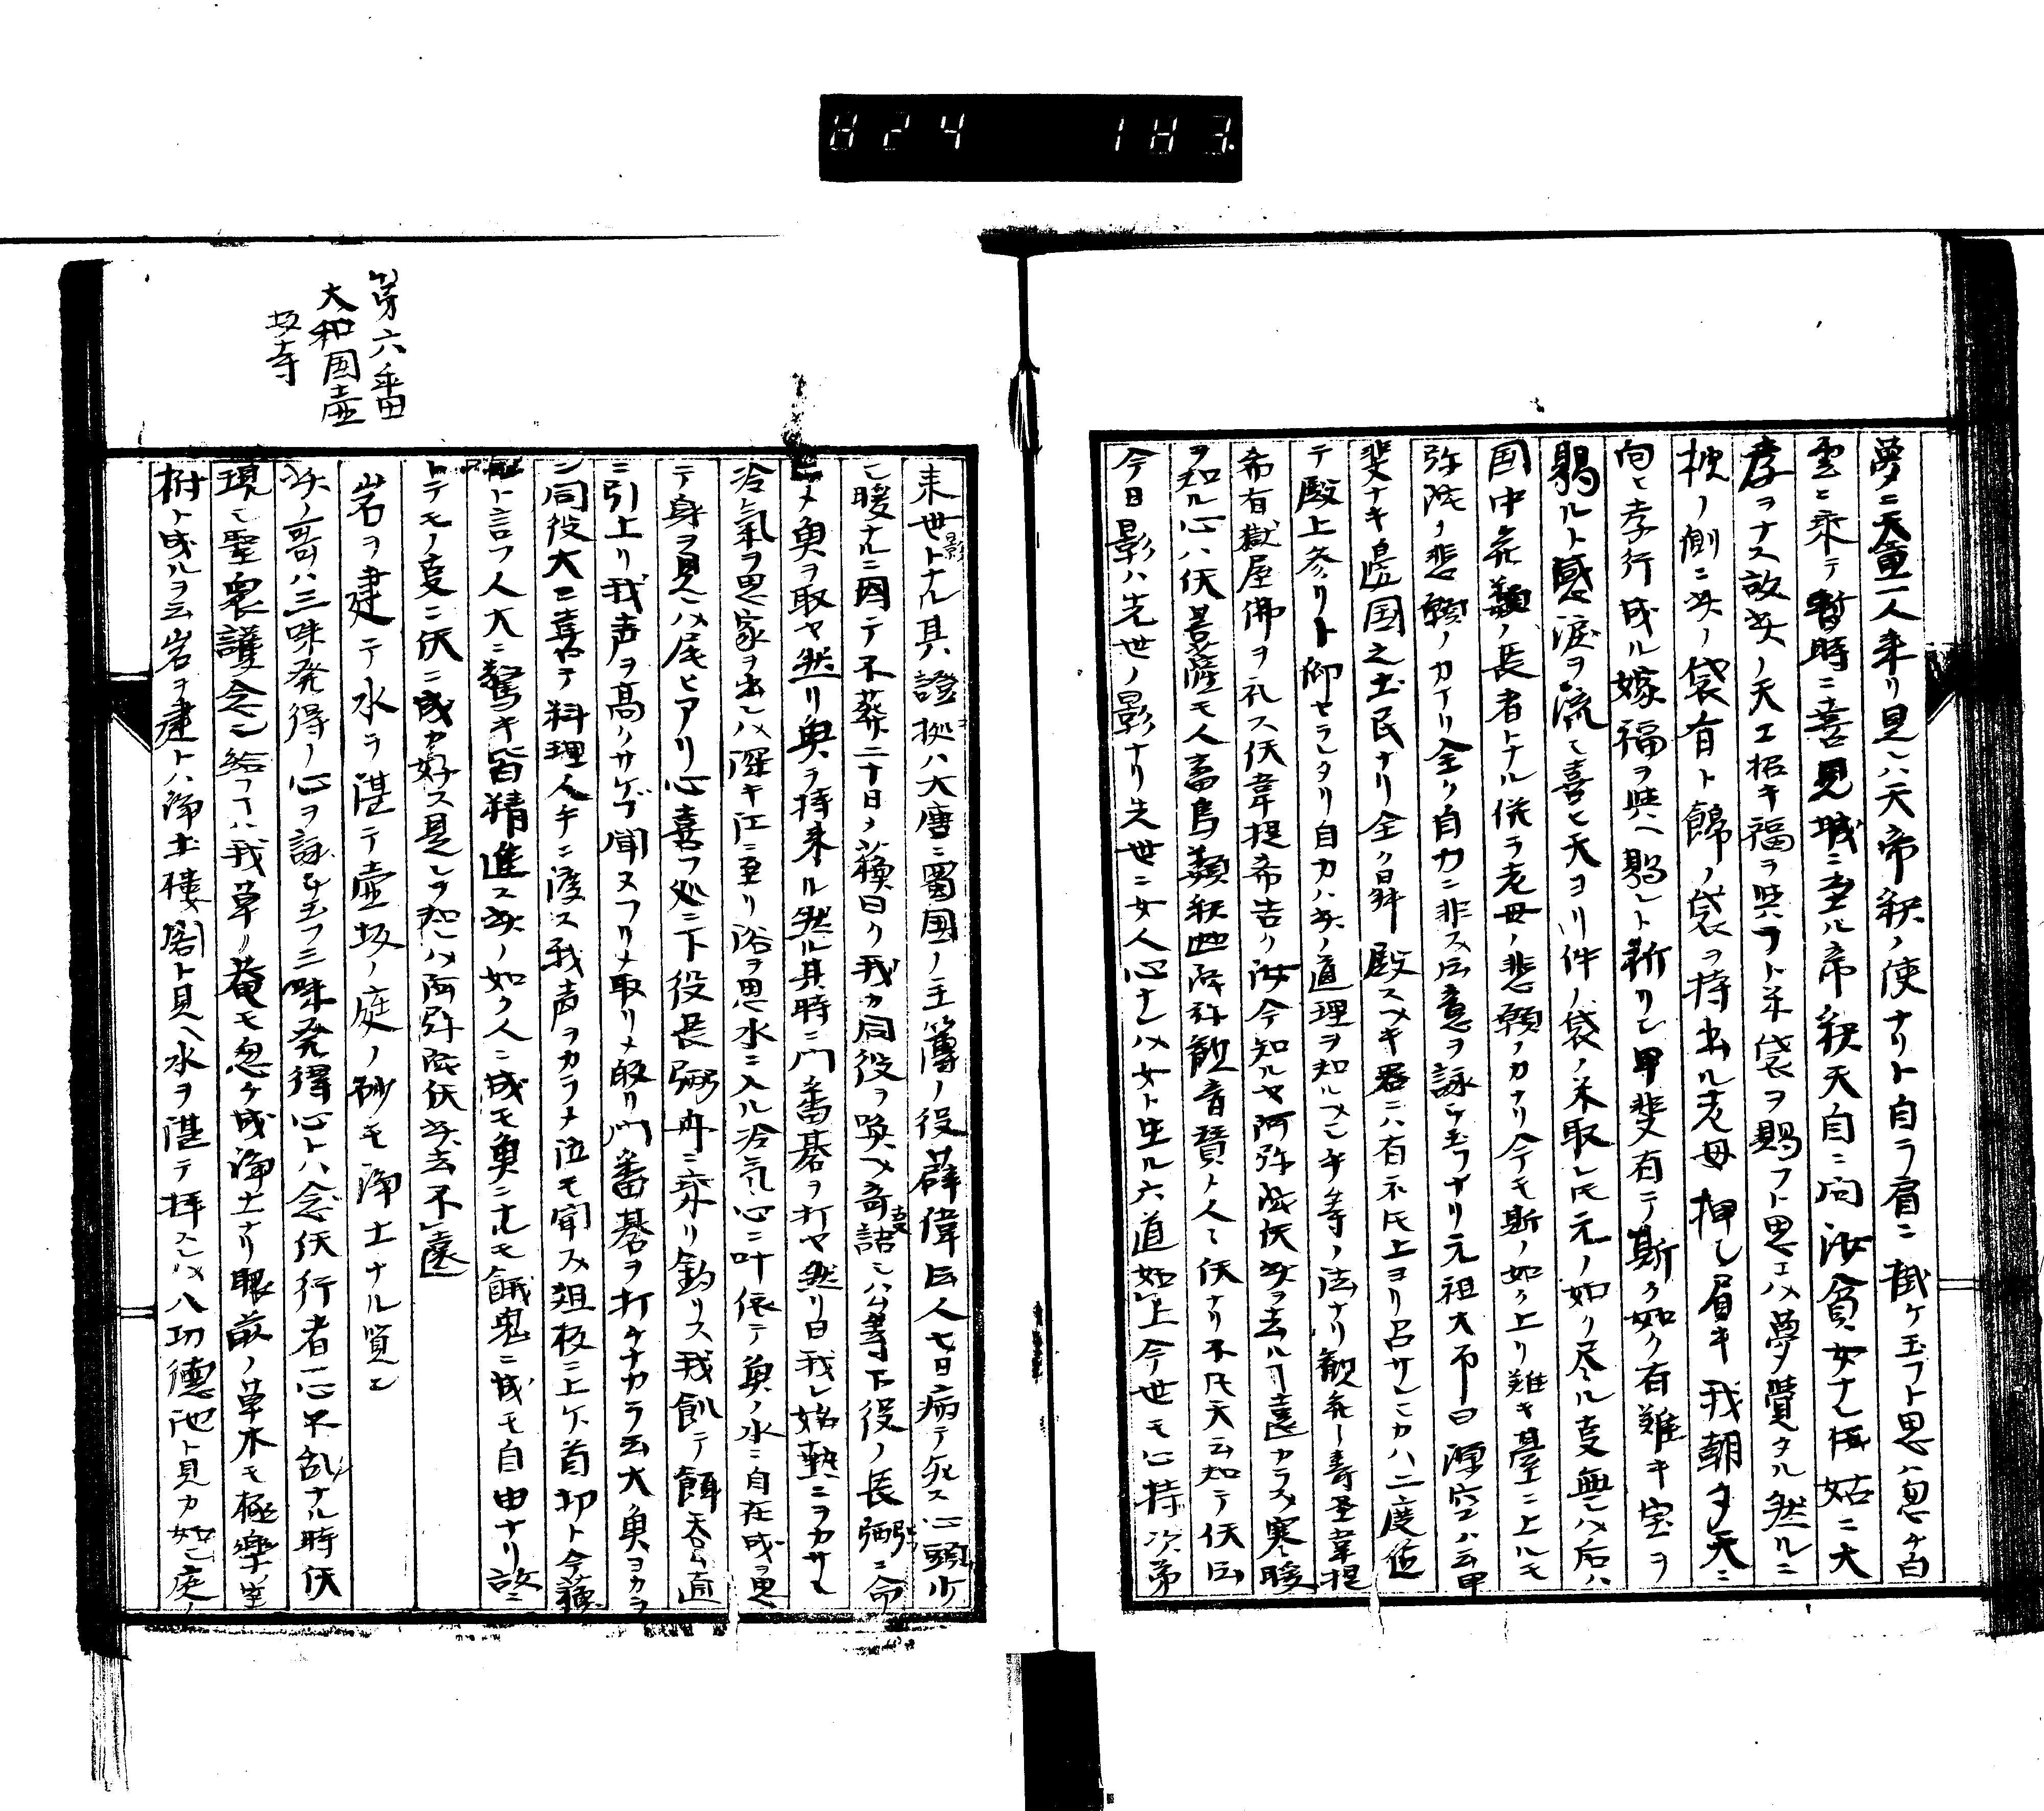 824 183.
夢ニ天童一人来リ見レハ天帝釈ノ使ナリト自ラ肩ニ掛ケ玉フト思ハ忽チ白
雲ニ乗テ暫時ニ喜見城ニ至ル帝釈天自ニ向汝貧女ナレ𪜈姑ニ大
孝ヲナス故此ノ天エ招キ福ヲ與フト米袋ヲ賜フト思エハ夢覚タル然ルニ
枕ノ側ニ此ノ袋有ト錦ノ袋ヲ持出ル老母押シ眉キ我朝夕天ニ
向ヒ孝行成ル嫁福ヲ與ヘ賜レト祈リシ甲斐有テ斯ク如ク有難キ宝ヲ
賜ルト感シ涙ヲ流シ喜ヒ天ヨリ件ノ袋ノ米取レ𪜈元ノ如リ尽ル支無レハ后ハ
国中無類ノ長者トナル併ラ老母ノ悲願ノカナリ今モ斯ノ如ク上リ難キ臺ニ上ルモ
弥陀ノ悲願ノカナリ全ク自力ニ非ス云意ヲ詠ケ玉フナリ元祖大師曰源空ハ云甲
斐ナキ邊国之土民ナリ全ク昇殿スヘキ器ニハ有不𪜈上ヨリ召サレシカハ二度迄
テ殿上参リト仰セラレタリ自力ハ此ノ道理ヲ知ルヘシ等ノ法ナリ観無量寿圣韋提
希有獄屋佛ヲ礼ス仸韋提希告ク汝今知ルヤ阿弥陀仸此ヲ去ルヿ遠カラス寒暖
ヲ知ル心ハ仸菩薩モ人畜鳥類釈迦陀弥観音賛ト人モ仸ナリ不𪜈天云知テ仸云
今日影ハ先世ノ影ナリ先世ニ女人心ナレハ女ト生ル六道如上今世モ心持次第
第六番
大和国壺
坂寺
来世ト影ナル其證拠ハ大唐ニ蜀国ノ主簿ノ役薛偉云人七日病テ死ス心頭少
シ暖ナルニ因テ不葬二十日ノ蘓曰ク我カ同役ヲ喚ヘ奇支語シ公等下役ノ長弼ニ命
シメ魚ヲ取ヤ然リ魚ヲ持来ル然ル其時ニ門番碁ヲ打ヤ然リ曰我レ始熱ニヲカサレ
冷氣ヲ思家ヲ出レハ深キ江ニ至リ浴ヲ思水ニ入ル冷気心ニ叶依テ魚ノ水ニ自在成ヲ思
テ身ヲ見レハ尾ヒアリ心喜フ処ニ下役長弼舟ニ乗リ釣リス我飢テ餌呑ム直
ニ引上リ我声ヲ高クサケブ聞ヌフリメ取リメ皈リ門番碁ヲ打チナカラ云大魚ヨカラ
ン同役大ニ喜ヒテ料理人手ニ渡ス我声ヲカラメ泣モ聞ス俎板ニ上ケ首切ト今蘓
ト言フ人大ニ驚キ皆精進ス此ノ如ク人ニ成モ魚ニ尤モ餓鬼ニ成モ自由ナリ
トテモノ支ニ仸ニ成カ好ス是レヲ知レハ阿弥陀仸此去不遠
岩ヲ建テ水ヲ湛テ壺坂ノ庭ノ砂モ浄土ナル覧
此ノ哥ハ三昧発得ノ心ヲ詠セ玉フ三昧発得心トハ念仸行者一心不乱ナル時仸
現シ聖衆護念シ給フヿハ我草ノ菴モ忽ケ成浄土ナリ眼前ノ草木モ極樂宝
樹ト成ルヲ云岩ヲ建トハ浄土樓閣ト見ヘ水ヲ湛テ拝スレハ八功徳池ト見カ如シ庭ノ